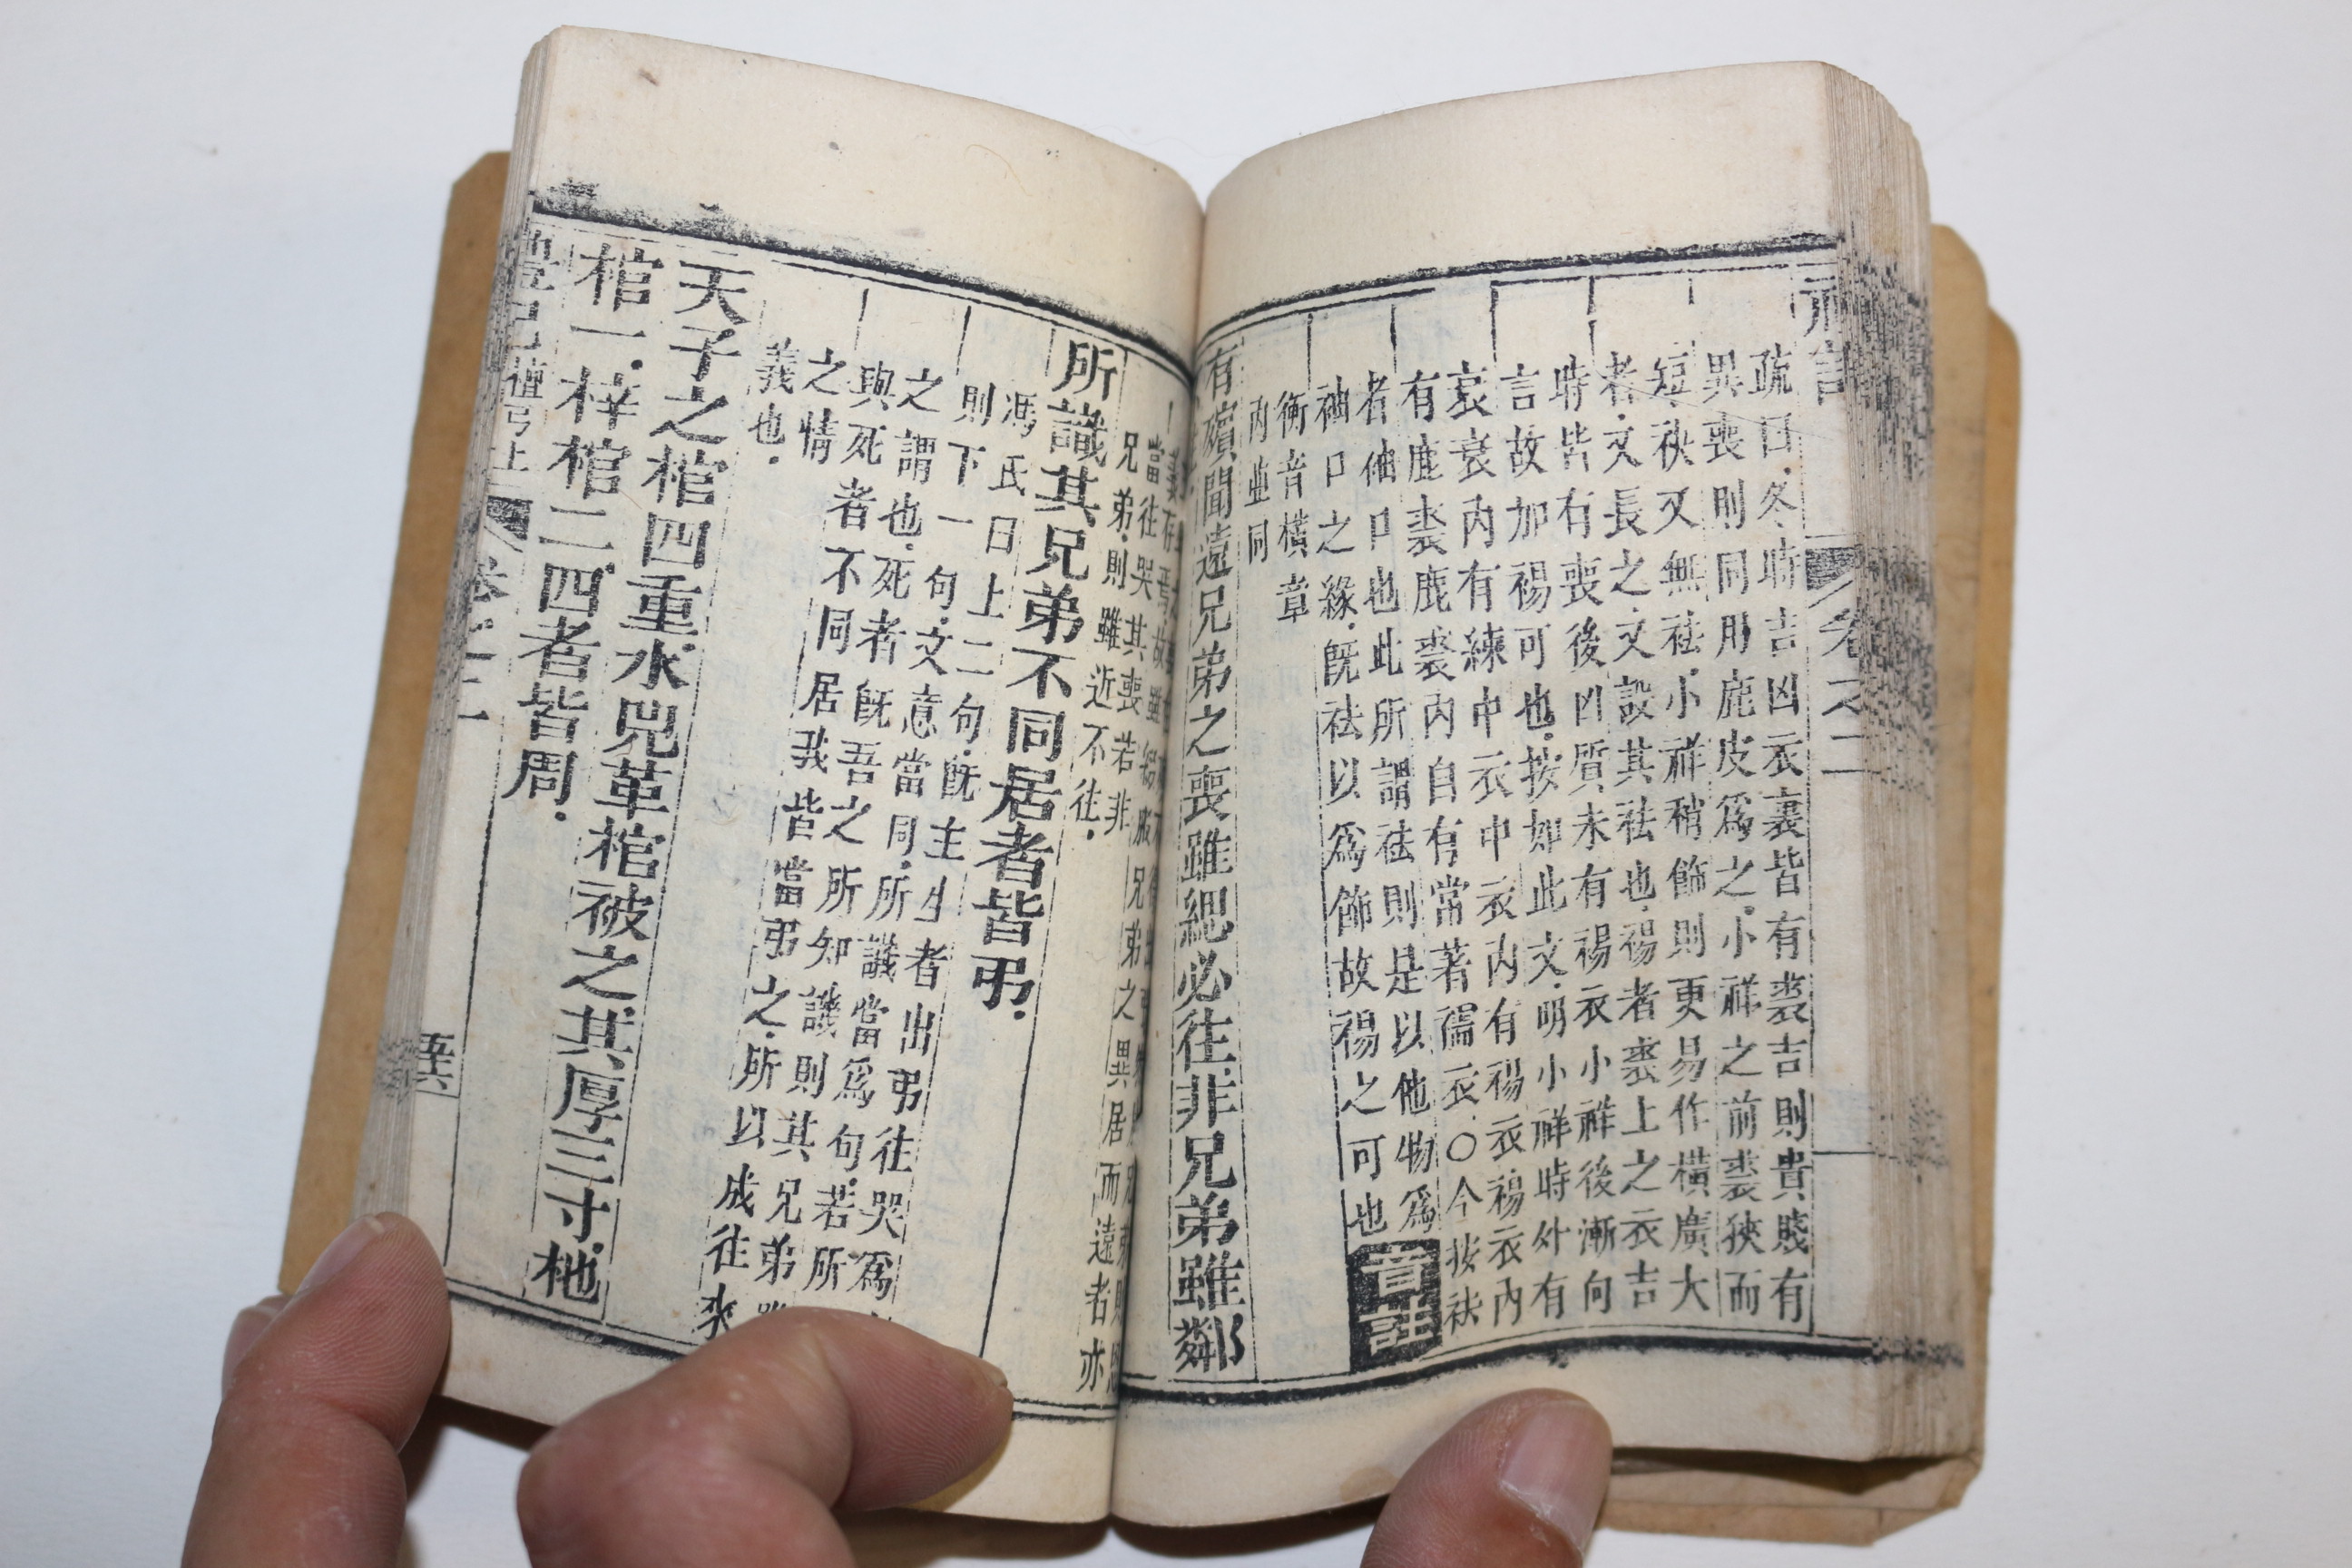 卷之二
疏曰冬時吉凶衣裏皆有裘吉則貴賤有
異喪則同用鹿皮爲之小祥之前裘狹而
短袂又無袪小祥稍飾則更易作橫廣大
者又長之又設其袪也裼者裘上之衣吉
時皆有喪後凶質未有裼衣小祥後漸向
言故加裼可也按如此文明小祥時外有
衰衰內有練中衣中衣內有裼衣裼衣內
有鹿裘鹿裘內自有常著襦衣○今按袂
者伷口也此所謂袪則是以他物爲
袖口之緣旣袪以爲飾故裼之可也音註
衡音橫章
內並同
有殯聞遠兄弟之喪雖緦必往非兄弟雖鄰
當往哭其喪若非兄弟之異居而遠者亦
兄弟則雖近不往
所識其兄弟不同居者皆弔
馮氏曰上二句旣主生者出弔往哭爲
則下一句文意當同所識當爲句若所
之謂也死者旣吾之所知識則其兄弟
與死者不同居我皆當弔之所以成往來
之情
義也
天子之棺四重水兕革棺被之其厚三寸杝
棺一梓棺二四者皆周
禮記檀弓上 卷之二 五六